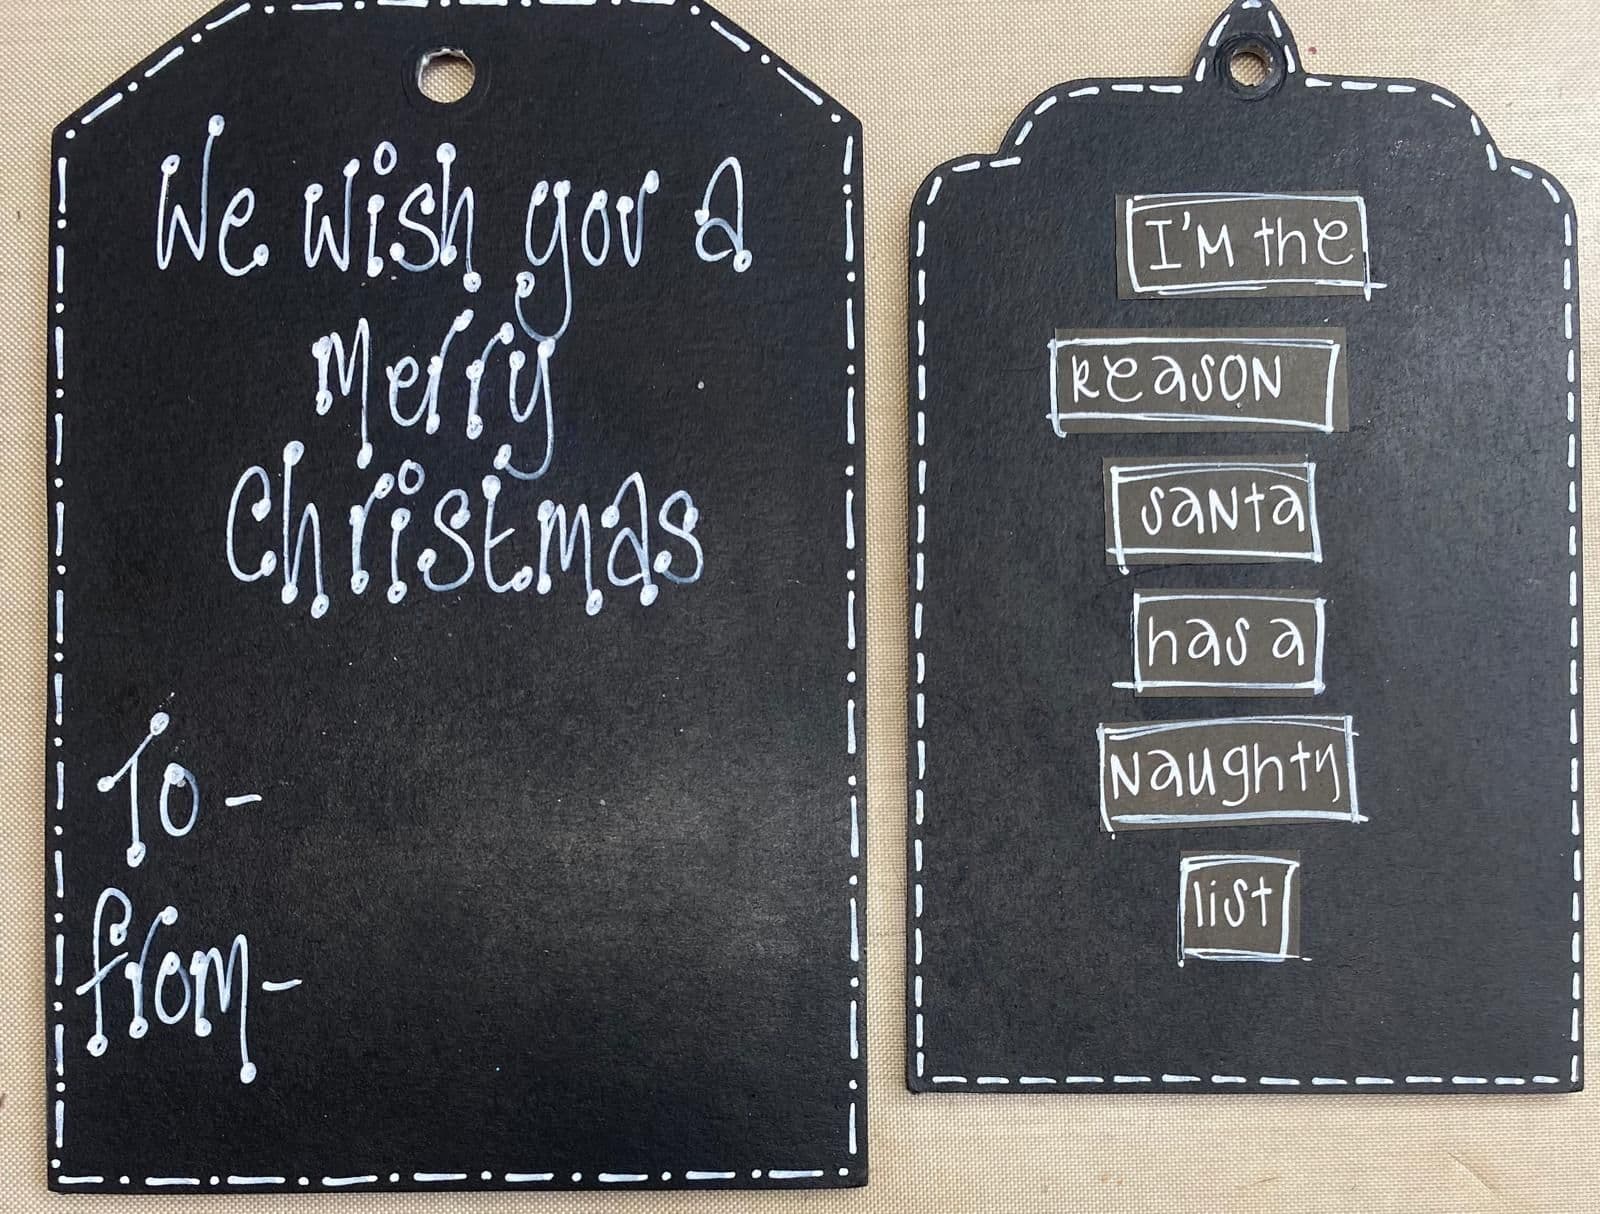 We wish you a
Merry
Christmas
To -
from -
I'M the
ReasoN
saNta
has a
Naughty
list